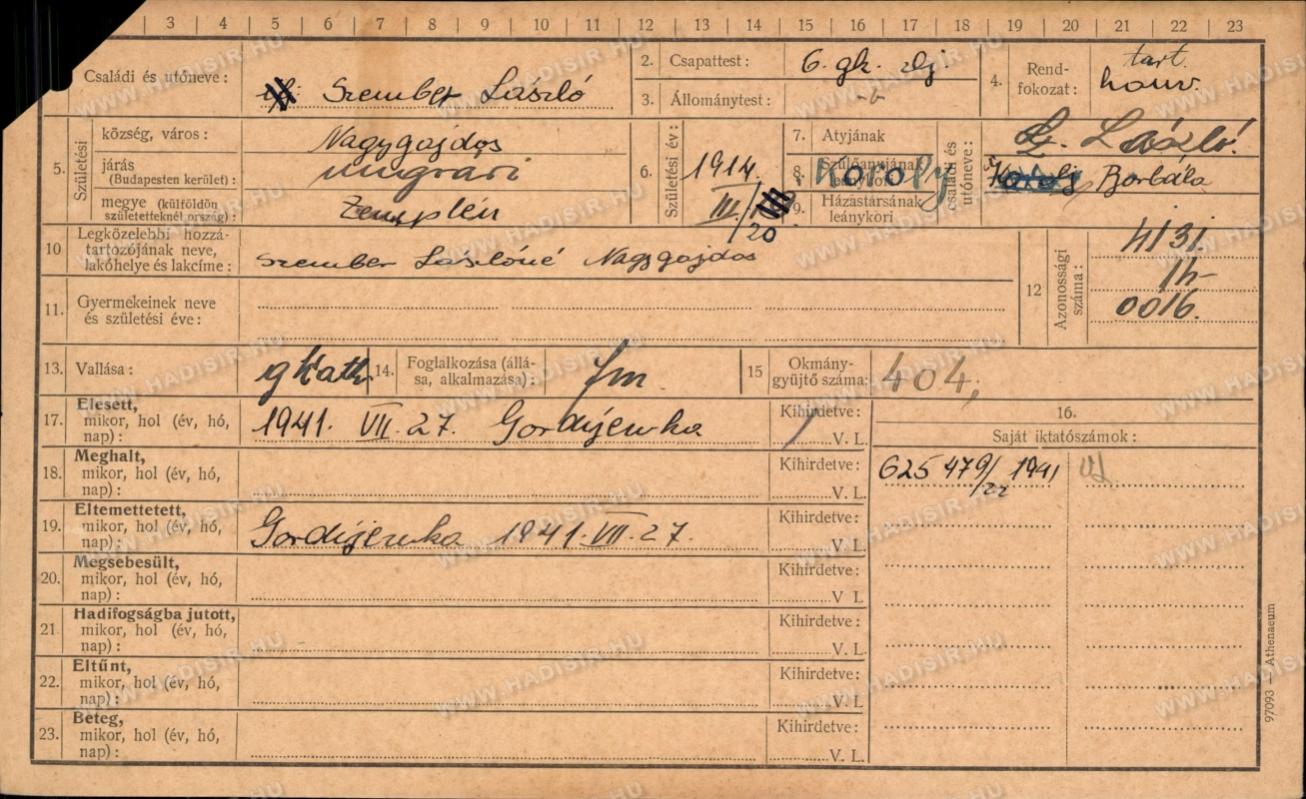 3 4 5 6 7 8 9 10 11 12 13 14 15 16 17 18 19 20 21 22 23
Családi és utóneve:
Szember László
2. Csapattest:
6. gk. zlj.
3. Állománytest:
4. Rend-
fokozat:
tart.
honv.
5. Születési
község, város:
Nagygajdos
járás
(Budapesten kerület):
ungvári
megye (külföldön
születetteknél ország):
Zemplén
6. Születési év:
1914.
III.
20
7. Atyjának
8. Szülőanyjának
leánykori
9. Házastársának
leánykori
családi és
utóneve:
László.
Koroly
Borbála
10 Legközelebbi hozzá-
tartozójának neve,
lakóhelye és lakcíme:
Szember Lászlóné Nagygajdos
11. Gyermekeinek neve
és születési éve:
12 Azonossági
száma:
4131.
1h-
0016.
13. Vallása:
gkath
14. Foglalkozása (állá-
sa, alkalmazása):
fm.
15 Okmány-
gyüjtő száma:
404,
17. Elesett,
mikor, hol (év, hó,
nap):
1941. VII. 27. Gordijewka
Kihirdetve:
V. L.
16.
Saját iktatószámok:
625 479/ 1941
/22
18. Meghalt,
mikor, hol (év, hó,
nap):
Kihirdetve:
V. L.
19. Eltemettetett,
mikor, hol (év, hó,
nap):
Gordijewka 1941. VII. 27.
Kihirdetve:
V L.
20. Megsebesült,
mikor, hol (év, hó,
nap):
Kihirdetve:
V L
21. Hadifogságba jutott,
mikor, hol (év, hó,
nap):
Kihirdetve:
V L.
22. Eltűnt,
mikor, hol (év, hó,
nap):
Kihirdetve:
V. L
23. Beteg,
mikor, hol (év, hó,
nap):
Kihirdetve:
V. L.
97093 — Athenaeum
WWW.HADISIR.HU